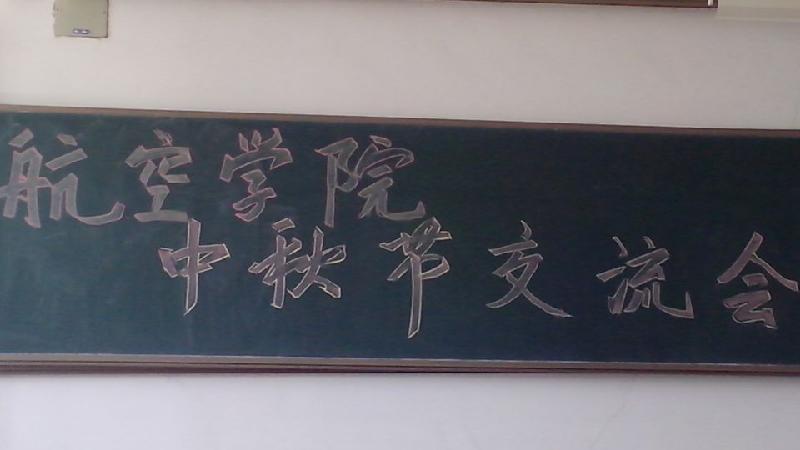 航空学院
中秋节交流会